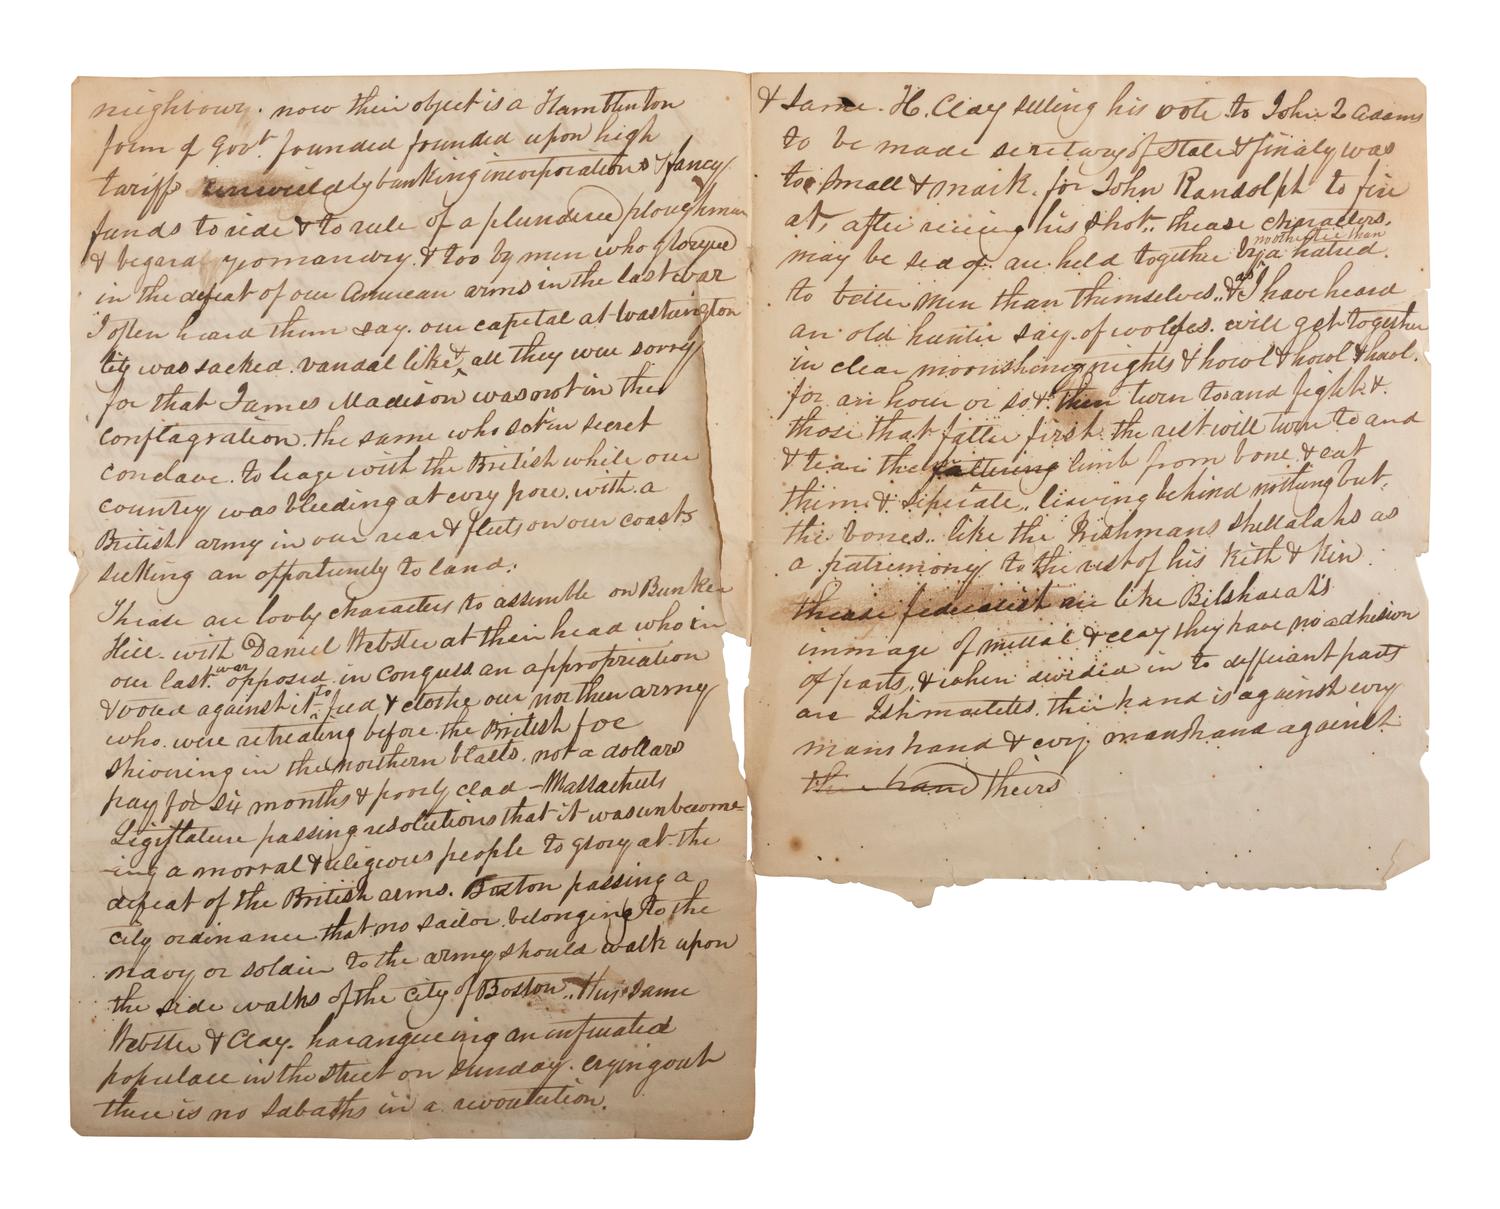 neighbours. now their object is a Hambleton
form of Govt. founded founded upon high
tariffs unwieldly banking incorporations & fancy
funds to ride & to rule of a plundered ploughman
& begard yeomanry. & too by men who gloryed
in the defeat of our American arms in the last war
I often heard them say. our capital at Washington
City was sacked. vandal like & all they were sorry
for that James Madison was not in the
conflagration. the same who set in secret
conclave. to leage with the British while our
country was bleeding at evry pore. with a
British army in our rear & fleets on our coasts
seeking an opportunity to land.
These are lovly characters to assemble on Bunker
Hill - with Daniel Webster at their head who in
our last war opposed in Congress an appropriation
& voted against it to feed & clothe our northern army
who were retreating before the British foe
shivering in the northern blasts. not a dollars
pay for six months & poorly clad - Massachuets
Legislature passing resolutions that it was unbecome-
-ing a morral & religious people to glory at the
defeat of the British arms. Boston passing a
city ordinance that no sailor belonging to the
navy or soldier to the army should walk upon
the side walks of the city of Boston.. This same
Webster & Clay. harangueing an infuriated
populace in the street on Sunday. crying out
there is no Sabaths in a revolution.
& same. H. Clay selling his vote to John Q Adams
to be made secretary of State & finaly was
too small a mark. for John Randolph to fire
at, after receiving his shot.. these characters.
may be sed of. are held together by a hatred.
no other tie than
to better men than themselves.. & as I have heard
an old hunter say. of wolfes. will get together
in clear moonshiney nights & howl & howl & howl.
for an hour or so & then turn to and fight &
those that faller first the rest will turn to and
& tear the faltering limb from bone & eat
them & seperate.. leaving behind nothing but
the bones.. like the Irishmans shellalahs as
a patrimony to the rest of his Kith & Kin
these federalist are like Bilsharatts
immage of mettal & clay they have no adhesion
of parts, & when divided in to different parts
are Ishmaelites. their hand is against evry
mans hand & evry mans hand against
their hand theirs